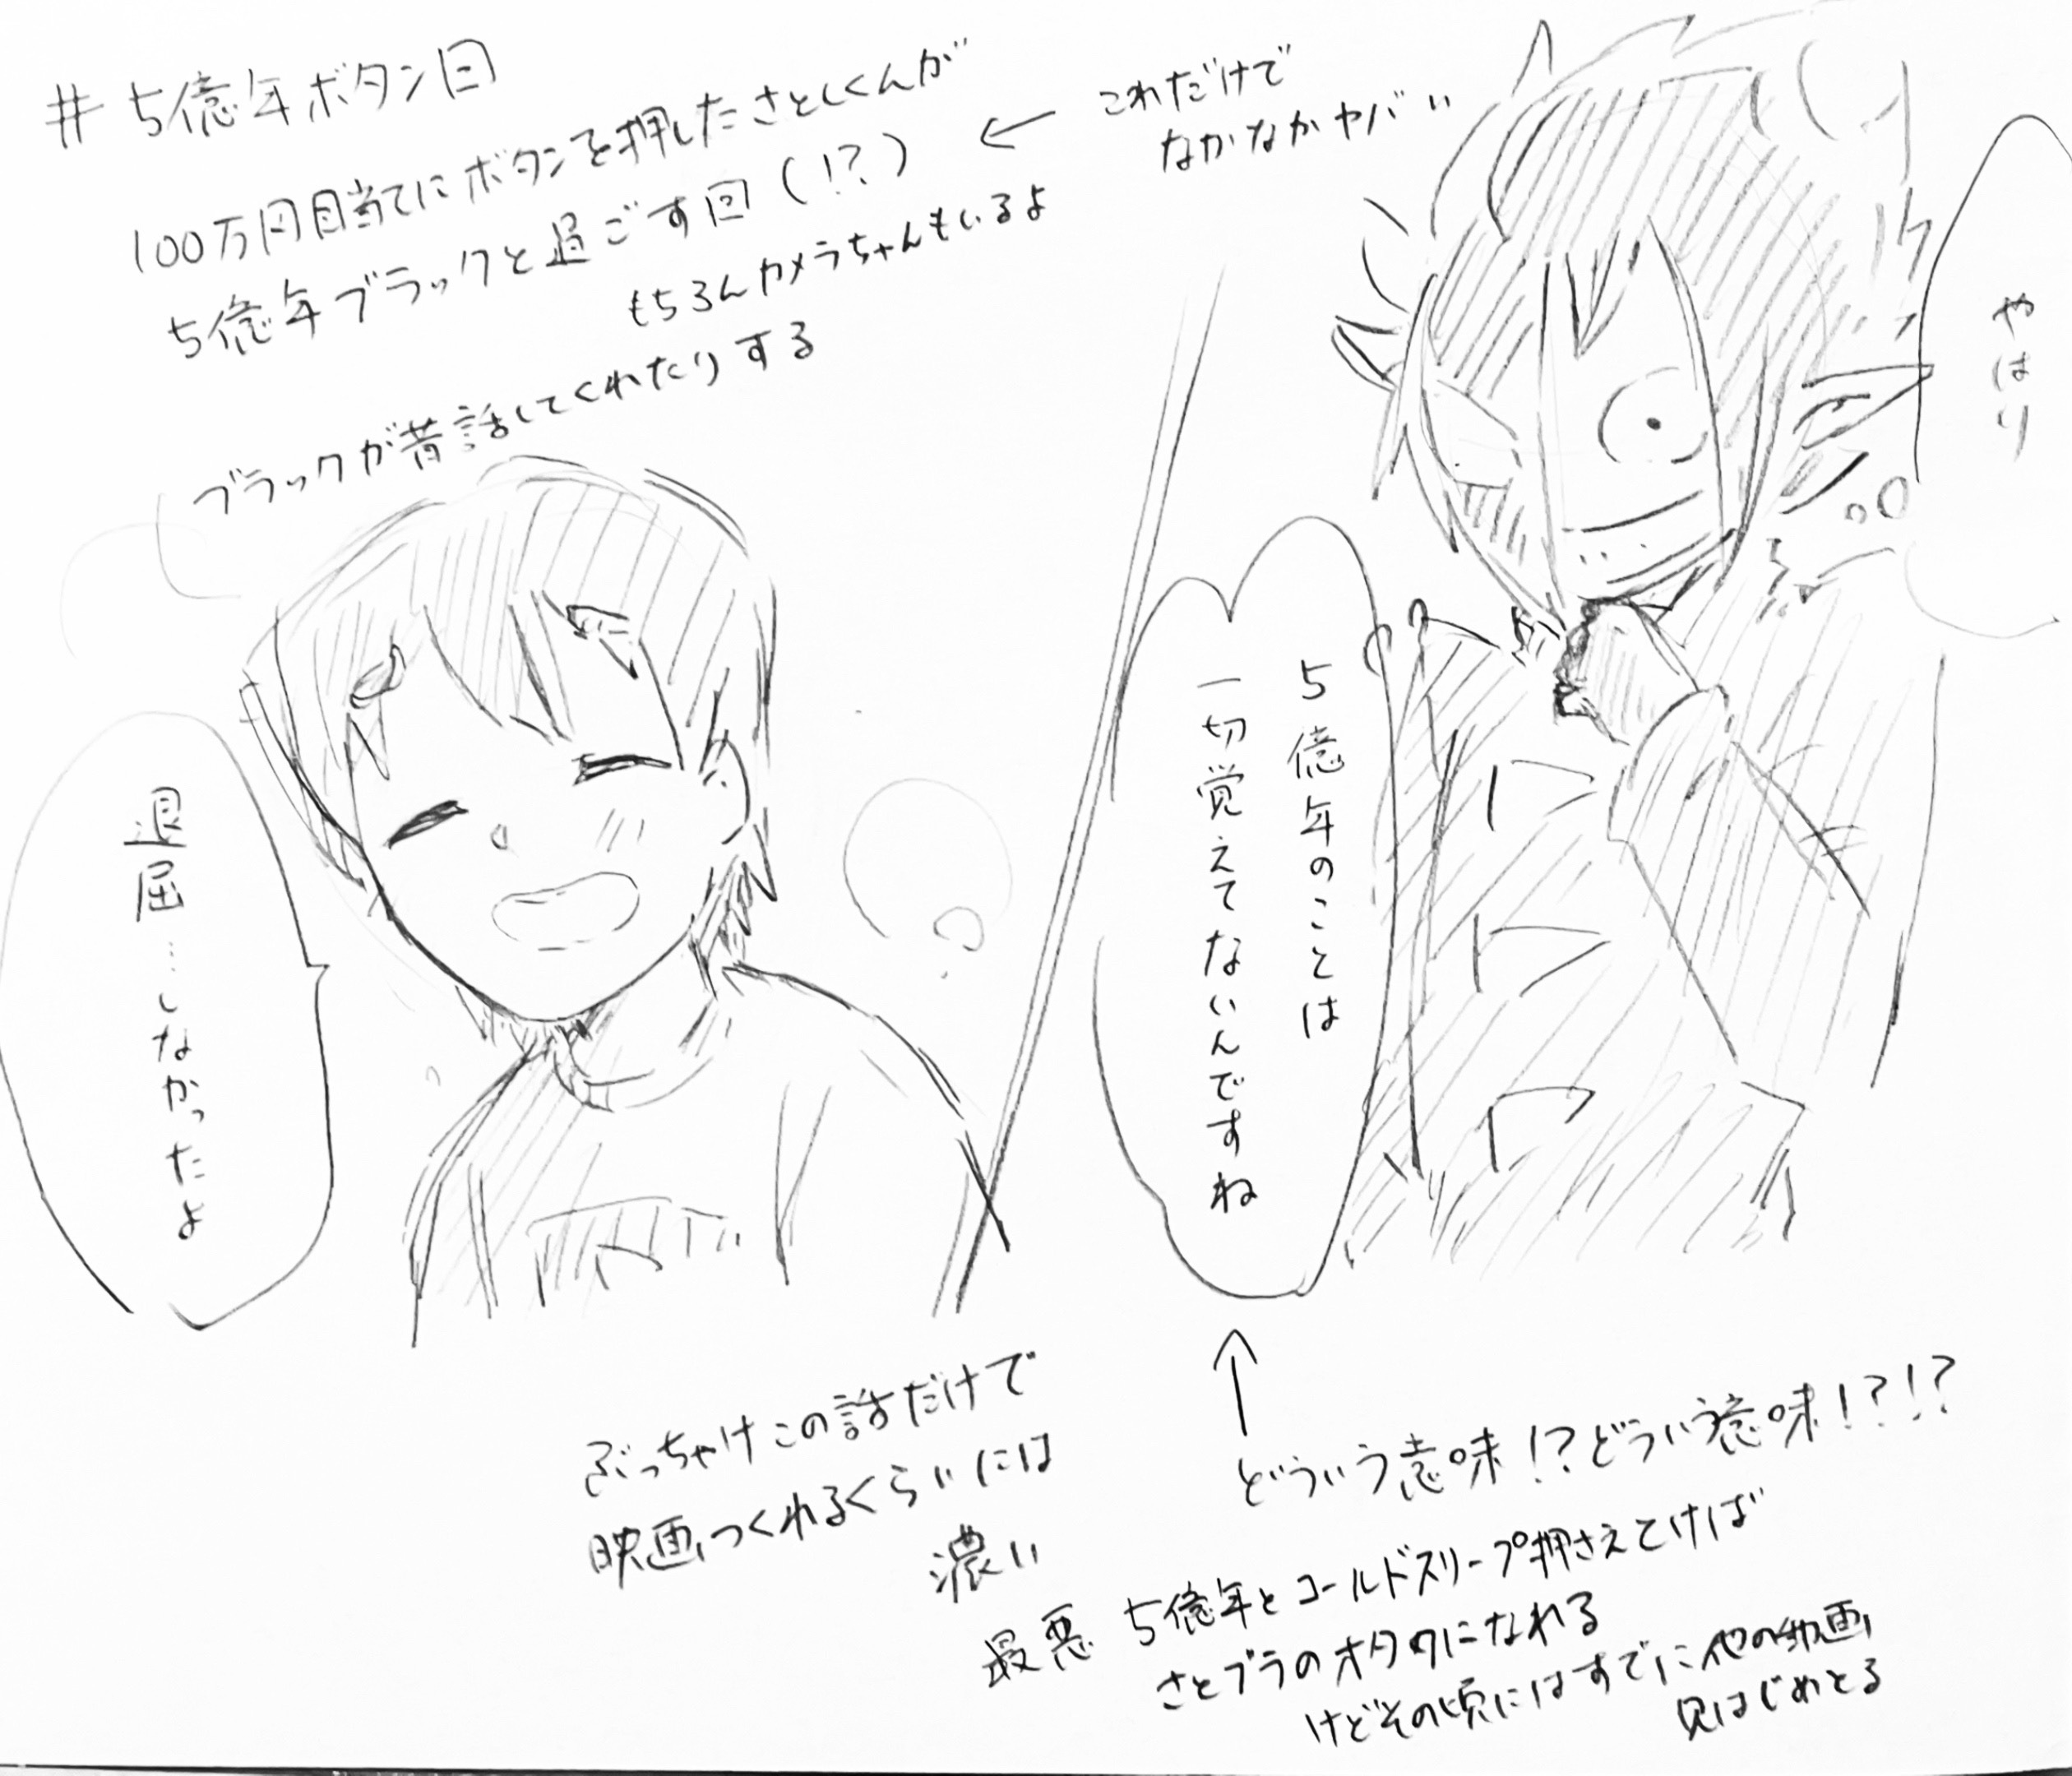 # 5億年ボタン回
100万円目当てにボタンを押したさとしくんが
5億年ブラックと過ごす回(!?)
← これだけで
なかなかヤバい
もちろんカメラちゃんもいるよ
ブラックが昔話してくれたりする
やはり
5億年のことは
一切覚えてないんですね
退屈…しなかったよ
ぶっちゃけこの話だけで
映画つくれるくらいには
濃い
↑
どういう意味!?どういう意味!?!?
最悪 5億年とコールドスリープ押さえとけば
さとブラのオタクになれる
けどその頃にはすでに他の動画
見はじめとる